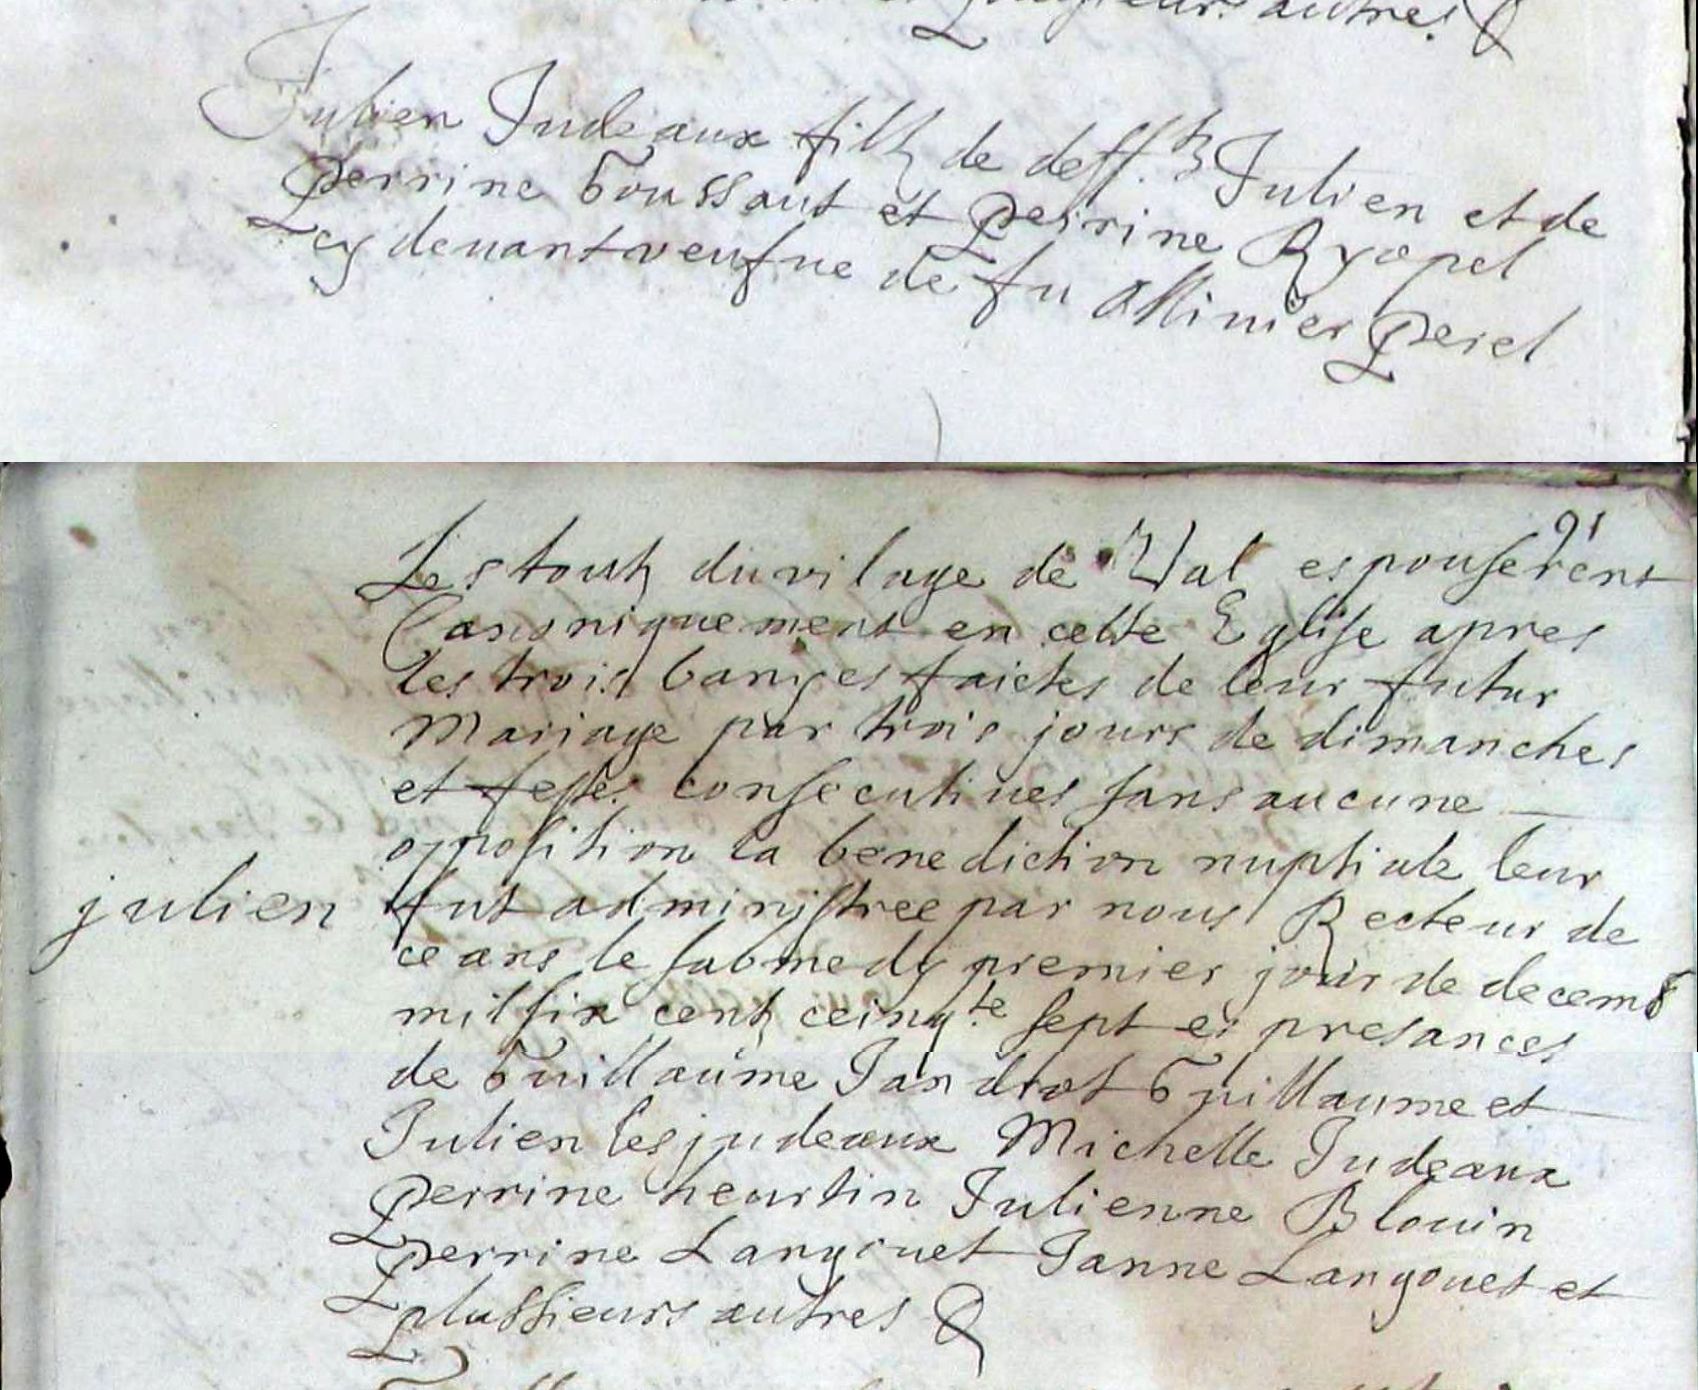 autres &
Julien Judeaux filz de deff.tz Julien et de
Perrine Toussaut et Perrine Ryopel
cy devant veufve de fu Ollivier Perel
91
Les toutz du vilage de Val espouserent
Canoniquement en cette Eglise apres
les trois banyes faictes de leur futur
Mariage par trois jours de dimanches
et festes consecutives sans aucune
opposition la benediction nuptiale leur
julien
fut administree par nous Recteur de
ceans le sabmedy premier jour de decemb
mil six centz ceinqte sept es presances
de Guillaume Jandrot Guillaume et
Julien les judeaux Michelle Judeaux
Perrine heurtin Julienne Blouin
Perrine Langouet Janne Langouet et
plussieurs autres &